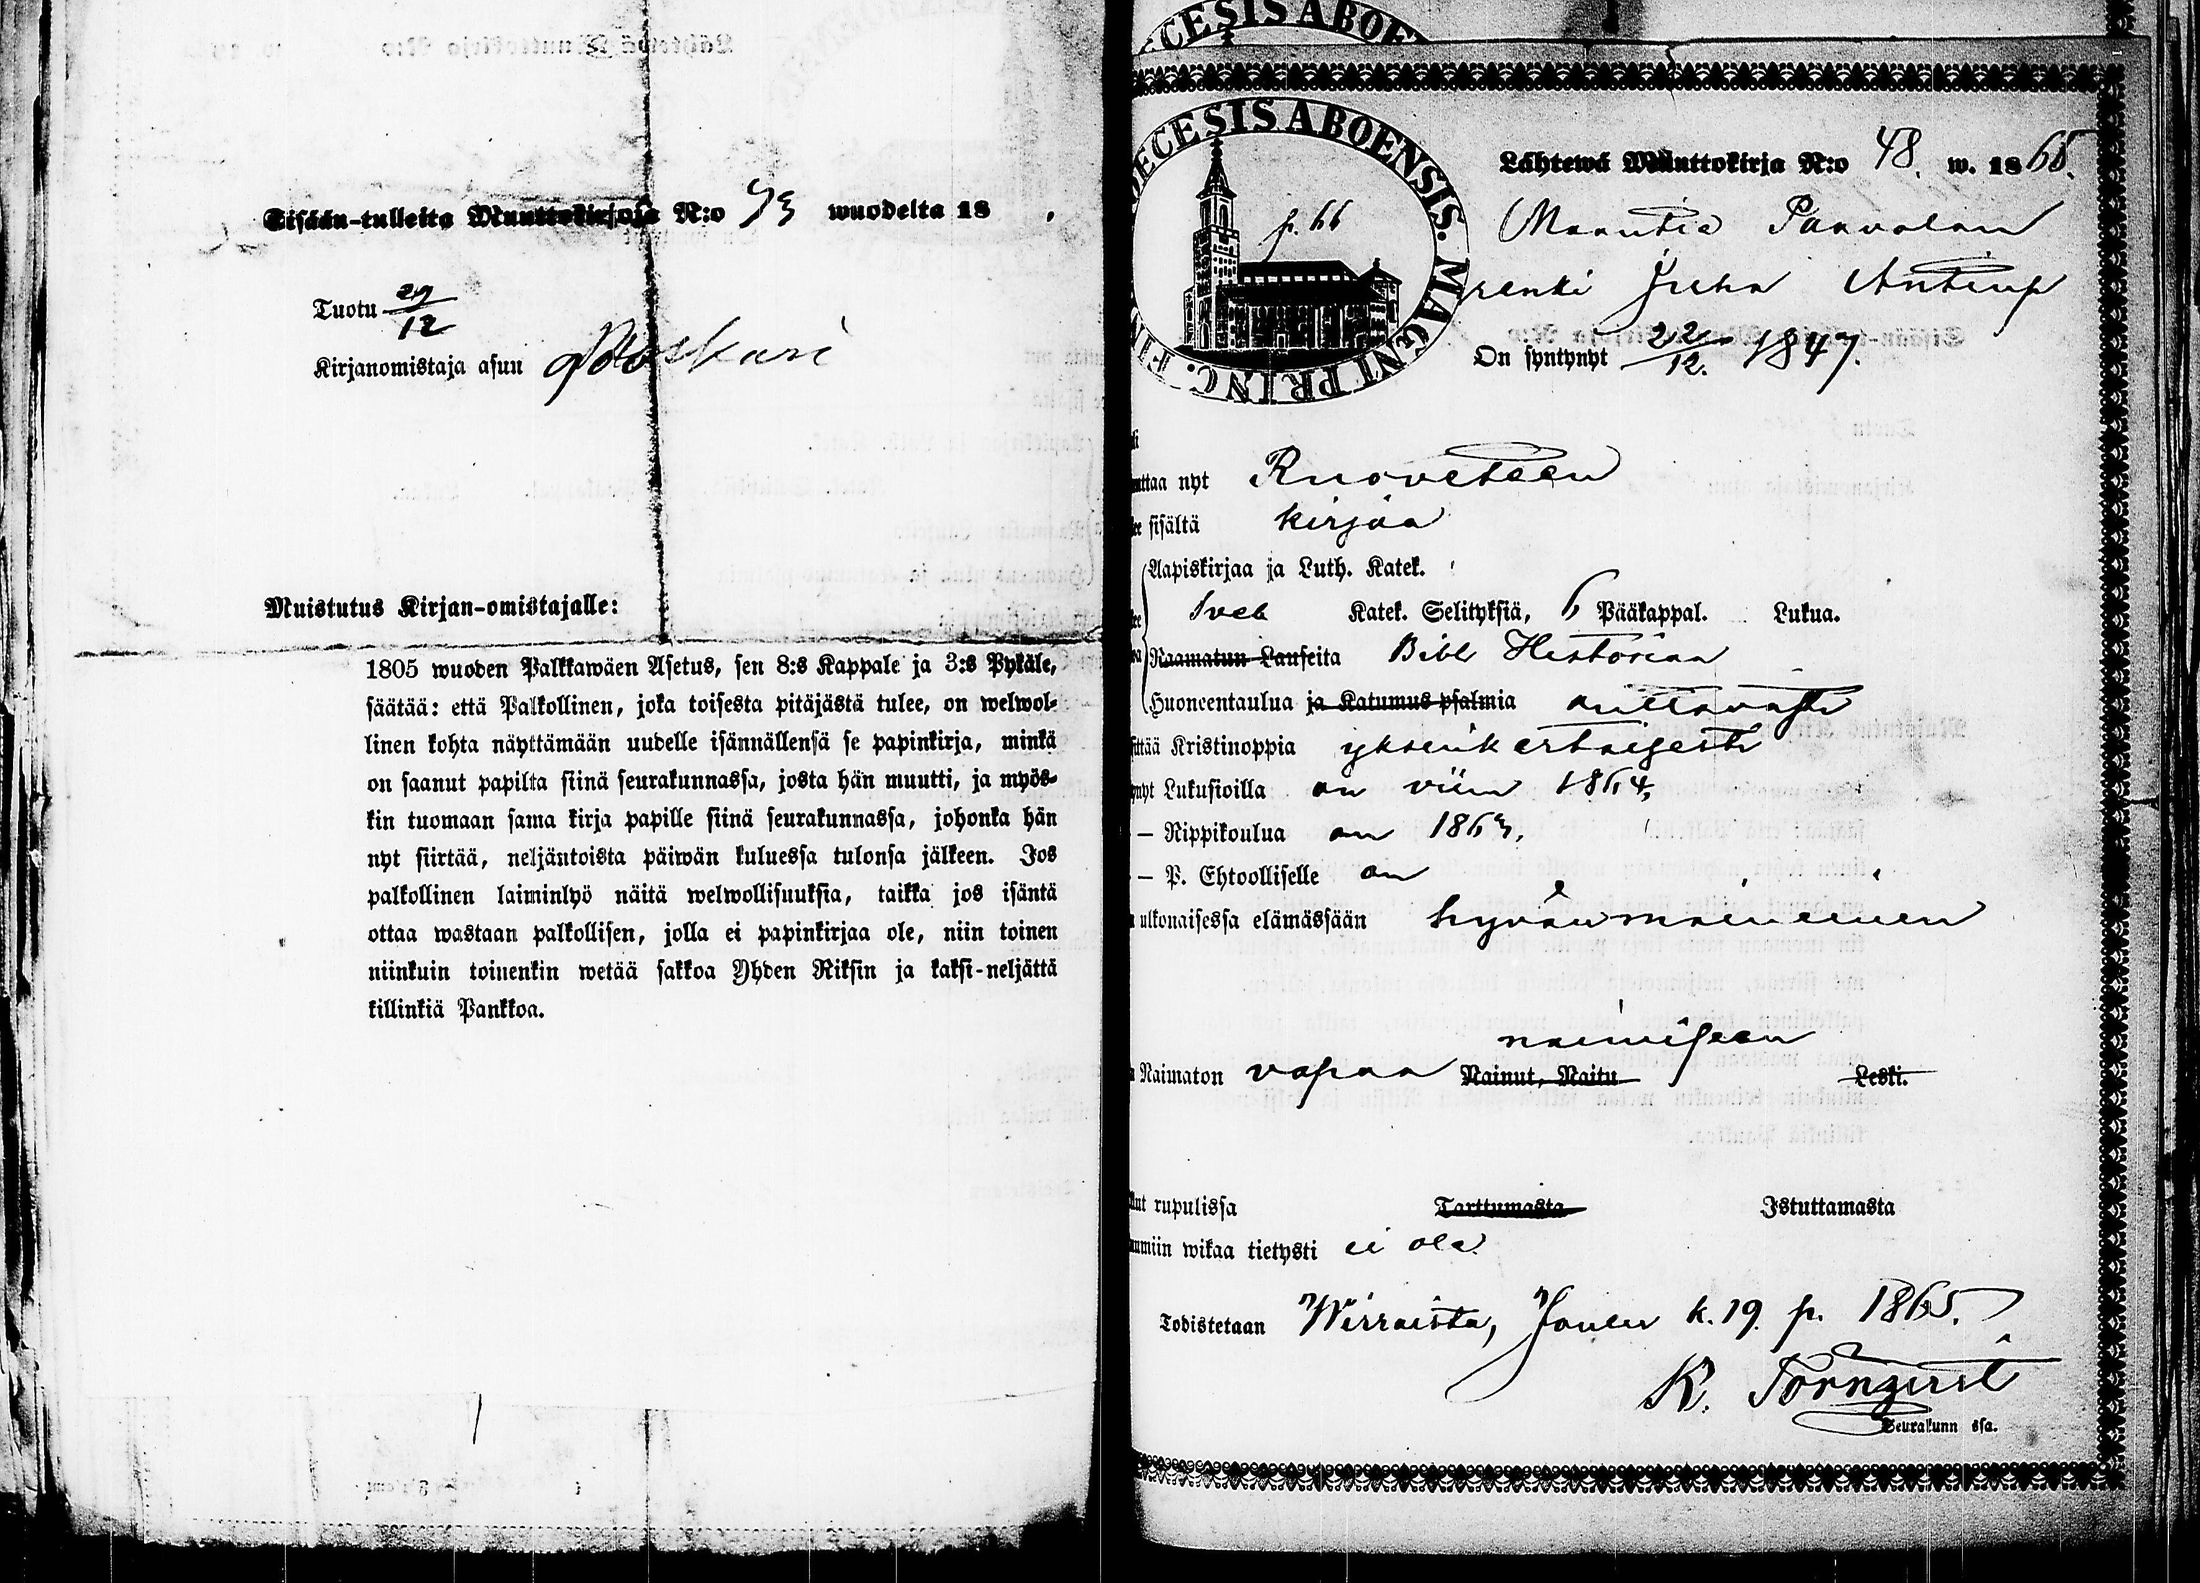 Sisään-tulleita Muuttokirjoja N:o 93 wuodelta 18 .
Tuotu 29/12
Kirjanomistaja asuu
Muistutus Kirjan-omistajalle:
1805 wuoden Palkkawäen Asetus, sen 8:s Kappale ja 3:s Pykäle,
säätää: että Palkollinen, joka toisesta pitäjästä tulee, on welwol-
linen kohta näyttämään uudelle isännällensä se papinkirja, minkä
on saanut papilta siinä seurakunnassa, josta hän muutti, ja myös-
kin tuomaan sama kirja papille siinä seurakunnassa, johonka hän
nyt siirtää, neljäntoista päiwän kuluessa tulonsa jälkeen. Jos
palkollinen laiminlyö näitä welwollisuuksia, taikka jos isäntä
ottaa wastaan palkollisen, jolla ei papinkirjaa ole, niin toinen
niinkuin toinenkin wetää sakkoa Yhden Riksin ja kaksi-neljättä
killinkiä Pankkoa.
CESIS ABOE
ECESIS ABOENSIS. MAGNI PRINC. FIN
p. 66
Lähtewä Muuttokirja N:o 48. w. 1865.
Paavolan
renki Juha Antinp
On syntynyt 22/12. 1847.
uttaa nyt Ruoveteen
sisältä kirjaa
Aapiskirjaa ja Luth. Katek.
Sveb Katek. Selityksiä, 6 Pääkappal. Lukua.
Raamatun Lauseita Bibl Historian
Huoneentaulua ja Katumus-psalmia auttavasti
sittää Kristinoppia yksinkertaisesti
ynyt Lukusioilla on viim 1864,
— Rippikoulua on 1863,
— P. Ehtoolliselle on
ulkonaisessa elämässään hyvänmaineinen
naimiseen
Naimaton vapaa Nainut, Naitu Leski.
nut rupulissa Tarttumasta Istuttamasta
umiin wikaa tietysti ei ole.
Todistetaan Wirroista, Joulu k. 19. p. 1865.
K. Törnqvist
Seurakunn ssa.